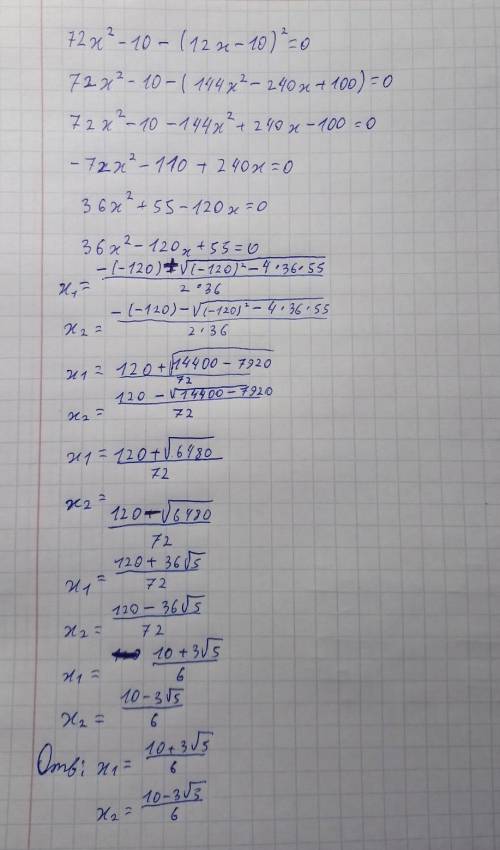 72x² - 10 - (12x - 10)² = 0
72x² - 10 - (144x² - 240x + 100) = 0
72x² - 10 - 144x² + 240x - 100 = 0
-72x² - 110 + 240x = 0
36x² + 55 - 120x = 0
36x² - 120x + 55 = 0
x₁ = (-(-120) + √((-120)² - 4*36*55)) / (2*36)
x₂ = (-(-120) - √((-120)² - 4*36*55)) / (2*36)
x₁ = (120 + √(14400 - 7920)) / 72
x₂ = (120 - √(14400 - 7920)) / 72
x₁ = (120 + √6480) / 72
x₂ = (120 - √6480) / 72
x₁ = (120 + 36√5) / 72
x₂ = (120 - 36√5) / 72
x₁ = (10 + 3√5) / 6
x₂ = (10 - 3√5) / 6
Отв: x₁ = (10 + 3√5) / 6
x₂ = (10 - 3√5) / 6